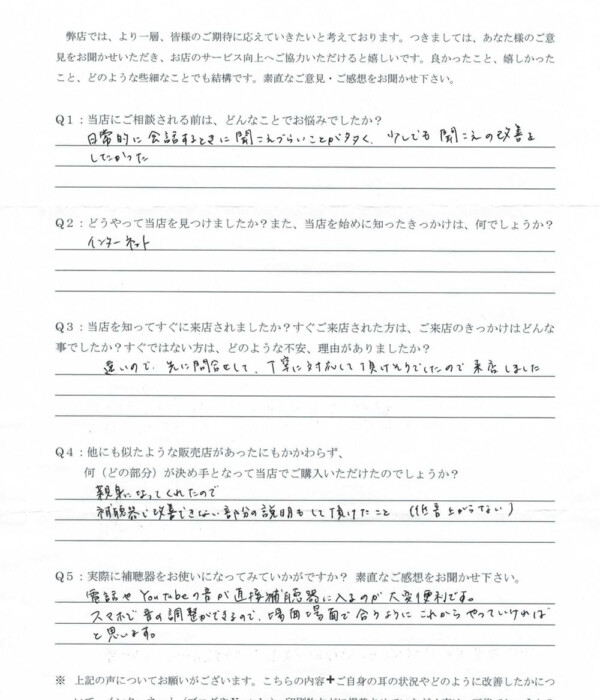 弊店では、より一層、皆様のご期待に応えていきたいと考えております。つきましては、あなた様のご意
見をお聞かせいただき、お店のサービス向上へご協力いただけると嬉しいです。良かったこと、嬉しかった
こと、どのような些細なことでも結構です。素直なご意見・ご感想をお聞かせ下さい。
Q1：当店にご相談される前は、どんなことでお悩みでしたか？
日常的に会話するときに聞こえづらいことが多く、少しでも聞こえの改善を
したかった
Q2：どうやって当店を見つけましたか？また、当店を始めに知ったきっかけは、何でしょうか？
インターネット
Q3：当店を知ってすぐに来店されましたか？すぐご来店された方は、ご来店のきっかけはどんな
事でしたか？すぐではない方は、どのような不安、理由がありましたか？
遠いので、先に問合せして、丁寧に対応して頂けそうでしたので来店しました
Q4：他にも似たような販売店があったにもかかわらず、
何（どの部分）が決め手となって当店でご購入いただけたのでしょうか？
親身になってくれたので
補聴器で改善できない部分の説明もして頂けたこと（低音上がらない）
Q5：実際に補聴器をお使いになってみていかがですか？ 素直なご感想をお聞かせ下さい。
電話やYoutubeの音が直接補聴器に入るのが大変便利です。
スマホで音の調整ができるので、場面場面で合うようにこれからやっていければ
と思います。
※ 上記の声についてお願いがございます。こちらの内容＋ご自身の耳の状況やどのように改善したかにつ